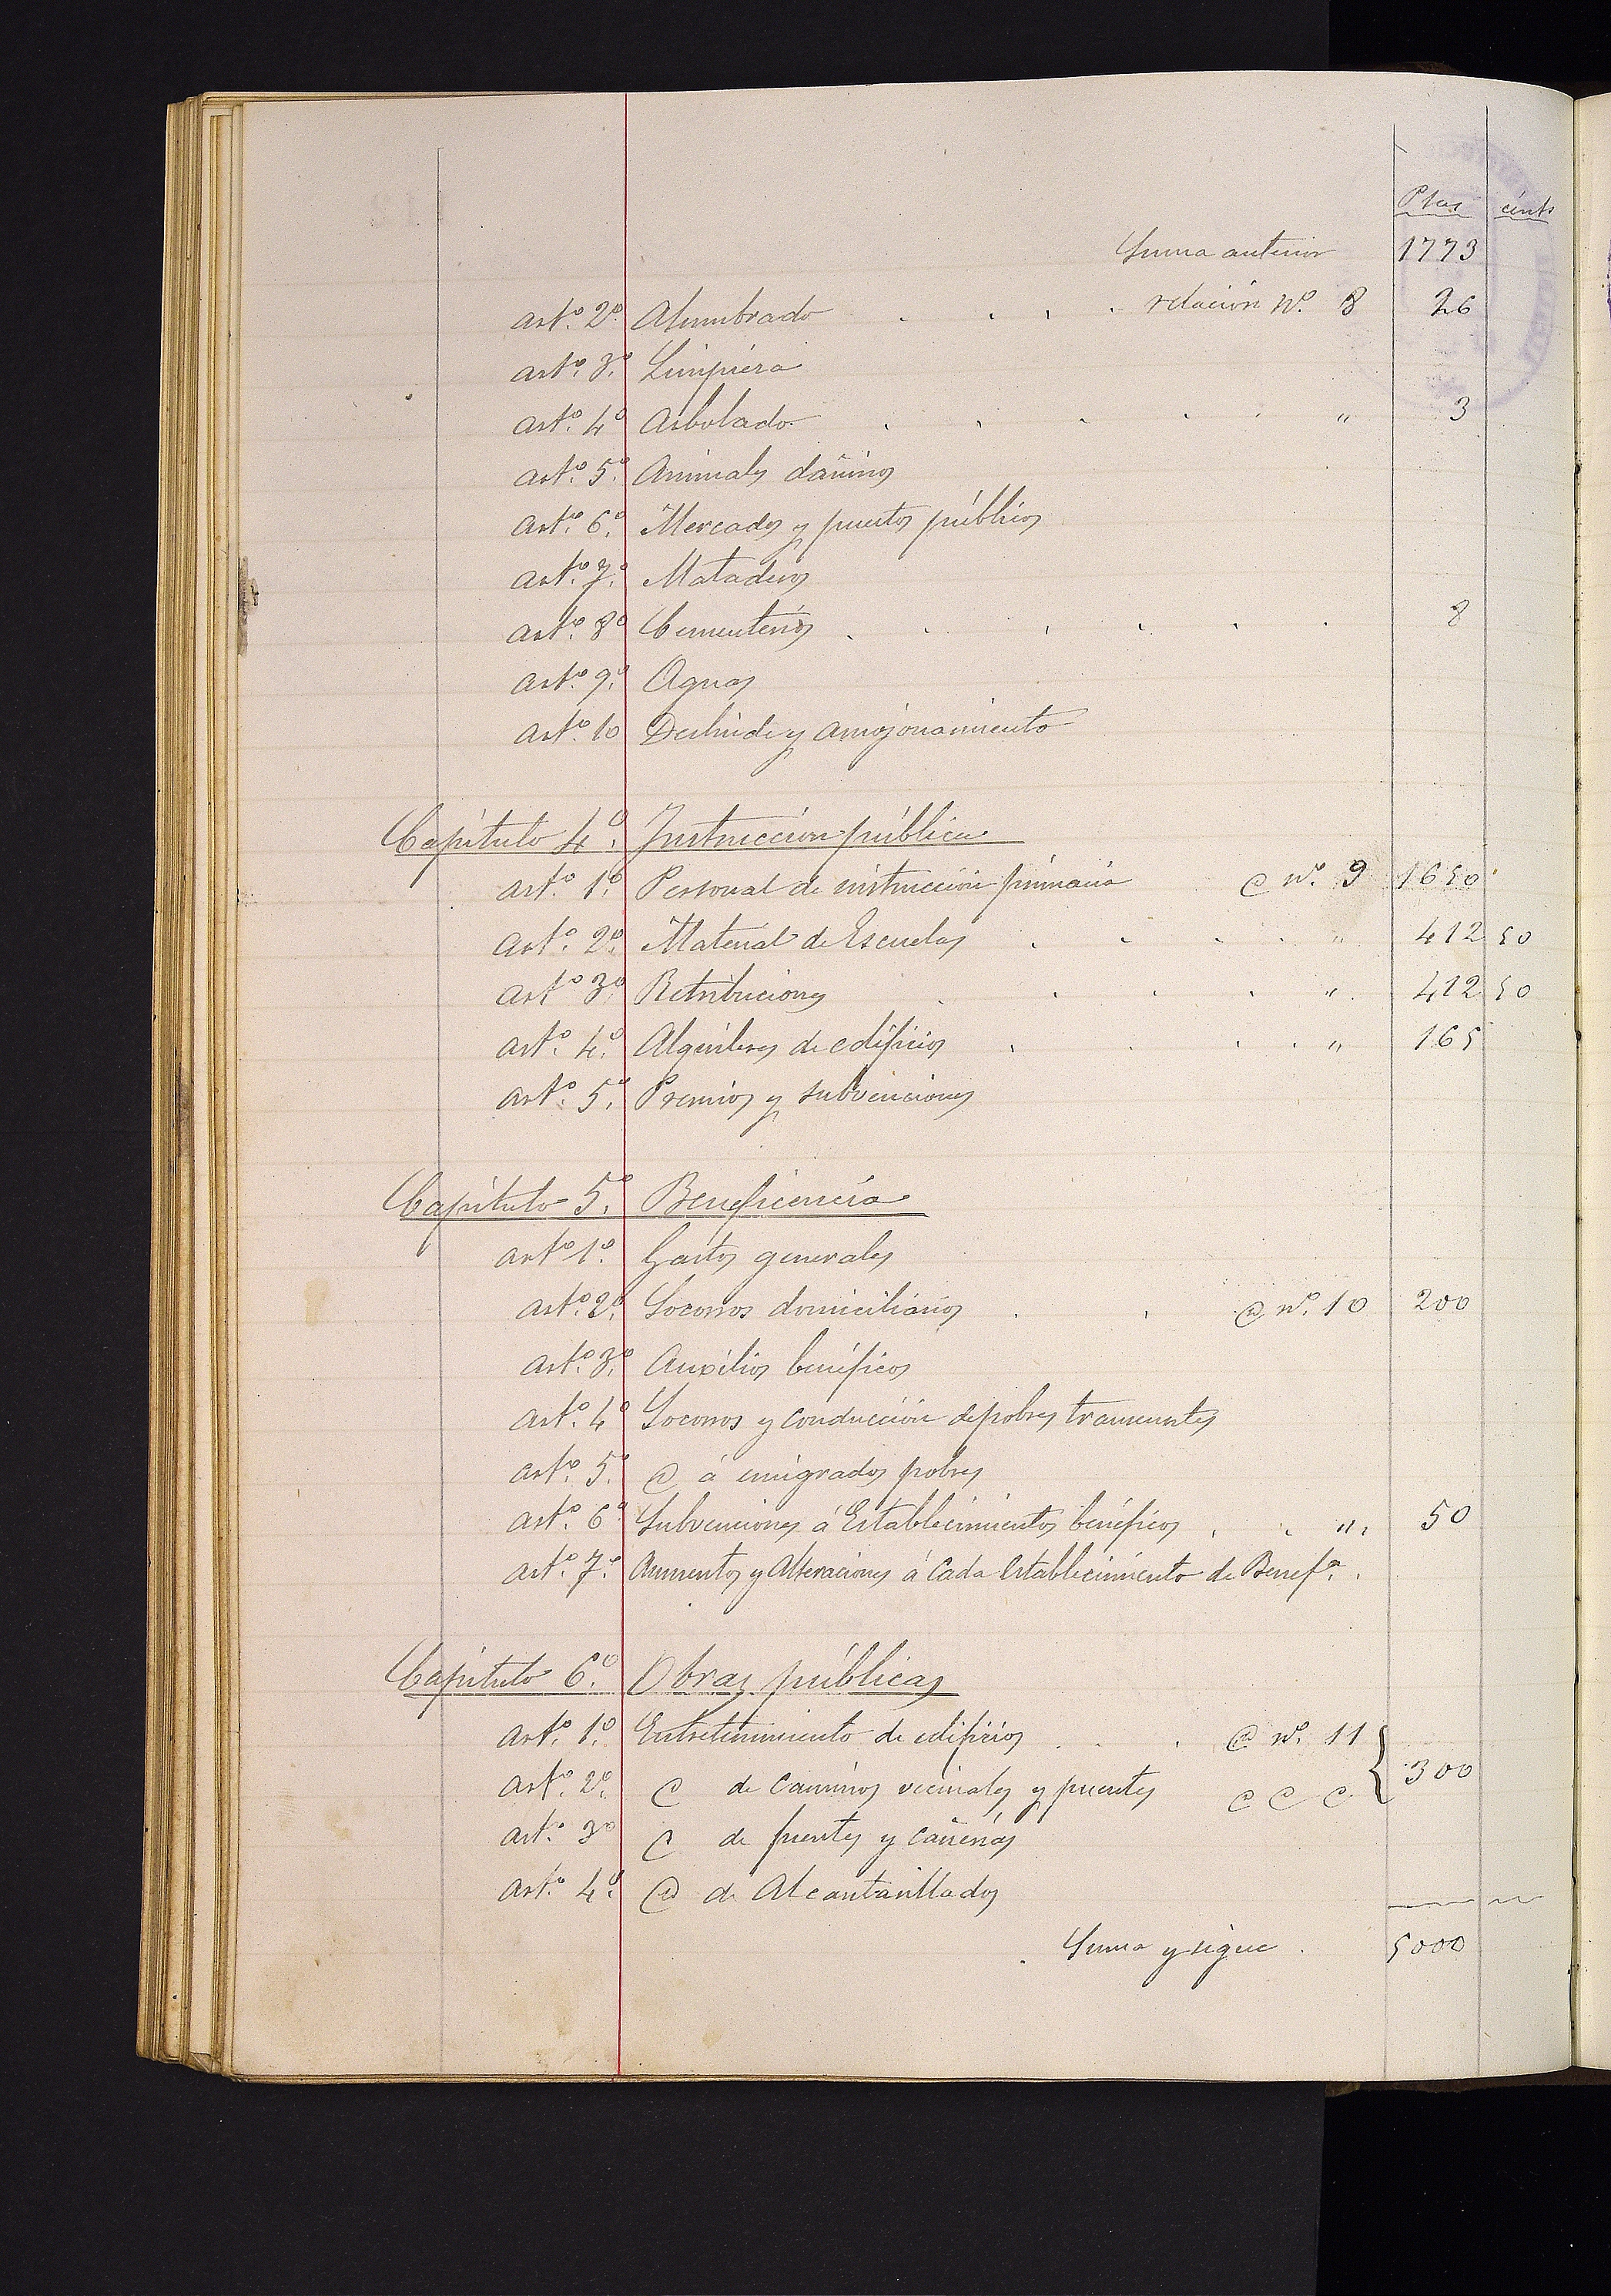 Ptas cénts
Suma anterior 1773
artº. 2º. Alumbrado . . . . relación Nº. 8 26
artº. 3º. Limpieza
artº. 4º Arbolado . . . . . " 3
artº. 5º. Animales dañinos
artº. 6º. Mercados y puestos públicos
artº. 7º. Mataderos
artº. 8º Cementerios . . . . . . 8
artº. 9º. Aguas
artº. 10 Deslinde y amojonamiento
Capítulo 4º. Instrucción pública
artº. 1º. Personal de instrucción primaria @ nº. 9 1650
artº. 2º. Material de Escuelas . . . . " 412 50
artº 3º. Retribuciones . . . . " 412 50
artº. 4º. Alquileres de edificios . . . . " 165
artº. 5º. Premios y subvenciones
Capítulo 5º. Beneficencia
artº 1º. Gastos generales
artº. 2º. Socorros domiciliarios . . @ nº. 10 200
artº. 3º. Auxilios benéficos
artº. 4º Socorros y conducción de pobres transeuntes
artº. 5º. @ á emigrados pobres
artº. 6º Subvenciones á Establecimientos benéficos . . " 50
artº. 7º. Aumentos y Alteraciones á cada establecimiento de Benefª. .
Capítulo 6º. Obras públicas
artº. 1º. Entretenimiento de edificios . . . @ nº. 11
artº. 2º. @ de caminos vecinales y puentes @ @ @ 300
artº. 3º @ de fuentes y cañerías
artº. 4º. @ de Alcantarillados
Suma y sigue . 5000